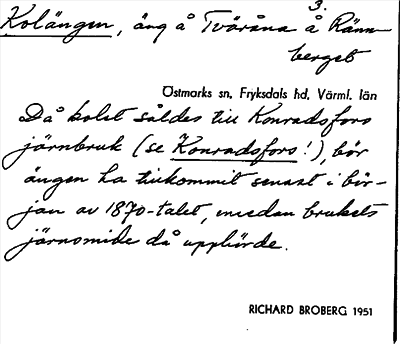 3.
Kolängen, äng å Tväråna å Ränn-
berget
Östmarks sn, Fryksdals hd, Värml. län
Då kolet såldes till Konradsfors
järnbruk (se Konradsfors!), bör
ängen ha tillkommit senast i bör-
jan av 1870-talet, medan brukets
järnsmide då upphörde.
RICHARD BROBERG 1951